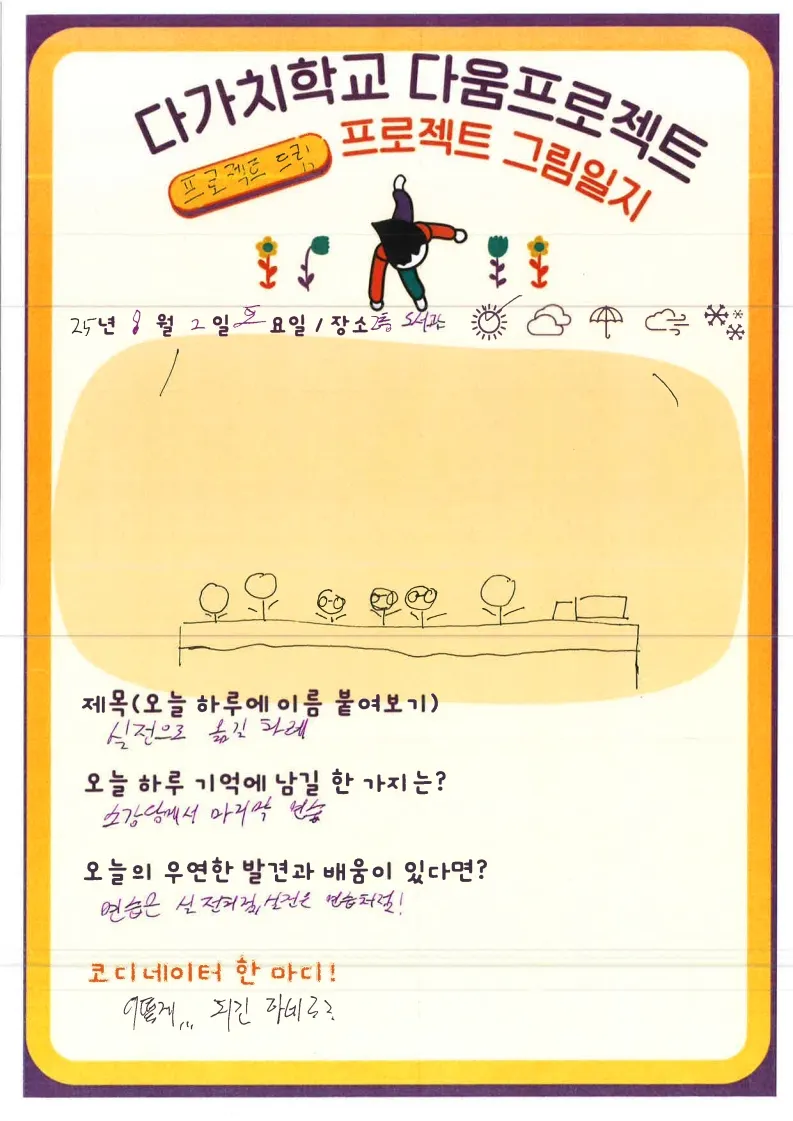 다가치학교 다움프로젝트
프로젝트 드림
프로젝트 그림일지
25년 8월 2일 토요일 / 장소 2층 도서관
제목(오늘 하루에 이름 붙여보기)
실전으로 옮길 차례
오늘 하루 기억에 남길 한 가지는?
소강당에서 마지막 연습
오늘의 우연한 발견과 배움이 있다면?
연습은 실전처럼, 실전은 연습처럼!
코디네이터 한 마디!
어떻게... 되긴 하네?